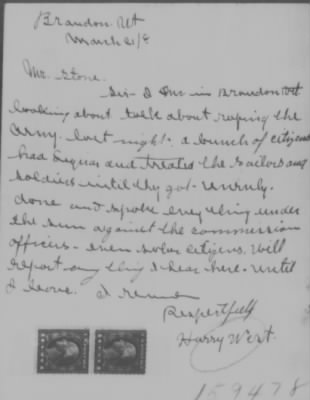 Brandon Vt
March 21/8
Mr. Stone.
Sir- I am in Brandon Vt
looking about talk about the
Army. last night. a bunch of citizens
had liquor and treated the sailors and
soldiers until they got unruly.
done and spoke every thing under
the sun against the commission
officers - even some citizens. Will
report any thing I hear here. until
I leave. I remain
Respectfully
Harry Wert.
159478